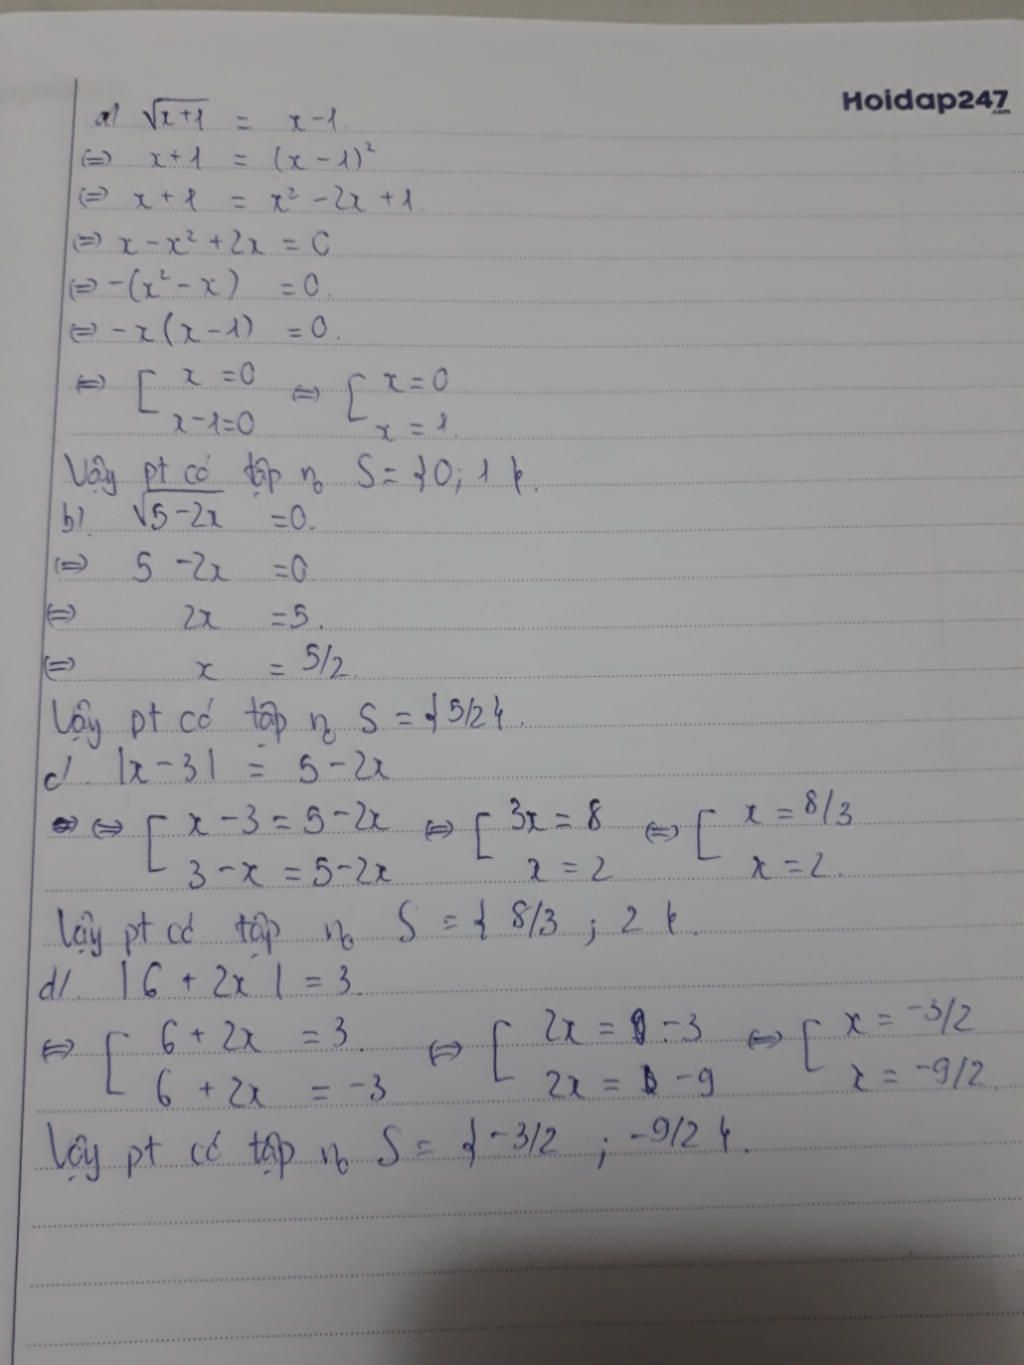 Hoidap247
a/ √(x+1) = x-1
(=) x+1 = (x-1)²
(=) x+1 = x² -2x +1.
(=) x-x²+2x = 0
(=) -(x²-x) =0.
(=) -x(x-1) =0.
(=) [ x =0 (=) [ x=0
x-1=0 x = 1.
Vậy pt có tập n₀ S={0; 1}.
b/. √(5-2x) =0.
(=) 5 -2x =0
(=) 2x =5.
(=) x = 5/2
Vậy pt có tập n₀ S={5/2}.
c/. |x-3| = 5-2x
(=) [ x-3=5-2x (=) [ 3x=8 (=) [ x=8/3
3-x=5-2x x=2 x=2.
Vậy pt có tập n₀ S={ 8/3 ; 2 }.
d/. |6+2x| = 3.
(=) [ 6+2x =3. (=) [ 2x = -3 (=) [ x = -3/2
6+2x = -3 2x = -9 x = -9/2.
Vậy pt có tập n₀ S={-3/2 ; -9/2}.